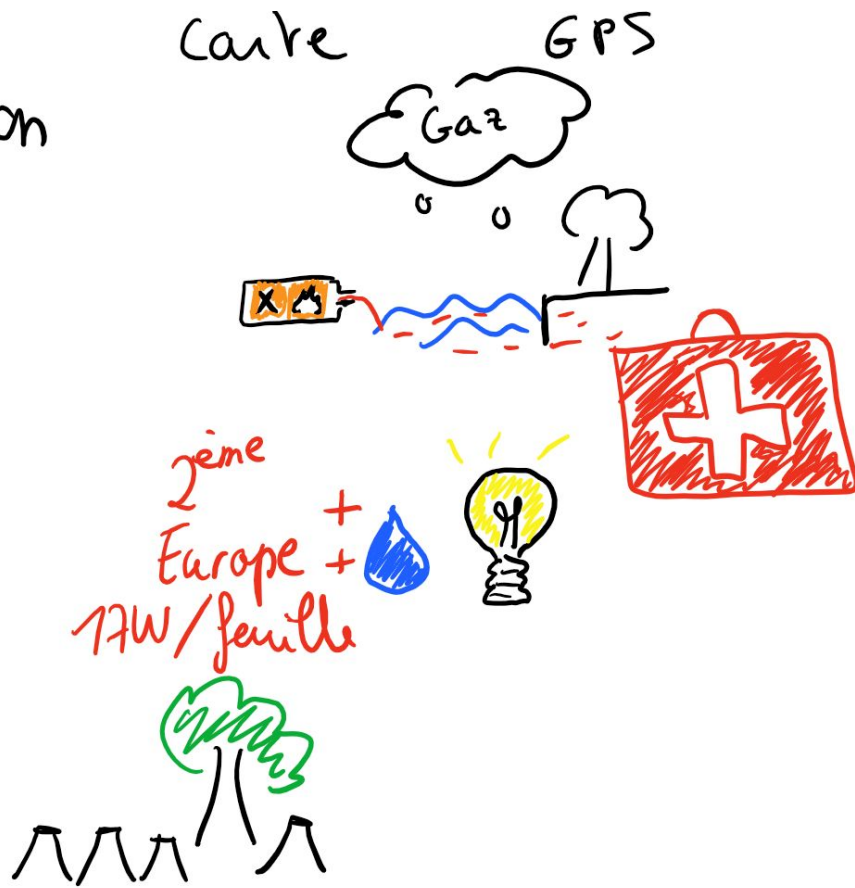 Carte GPS
on
Gaz
2ème
+
Europe +
17W/feuille